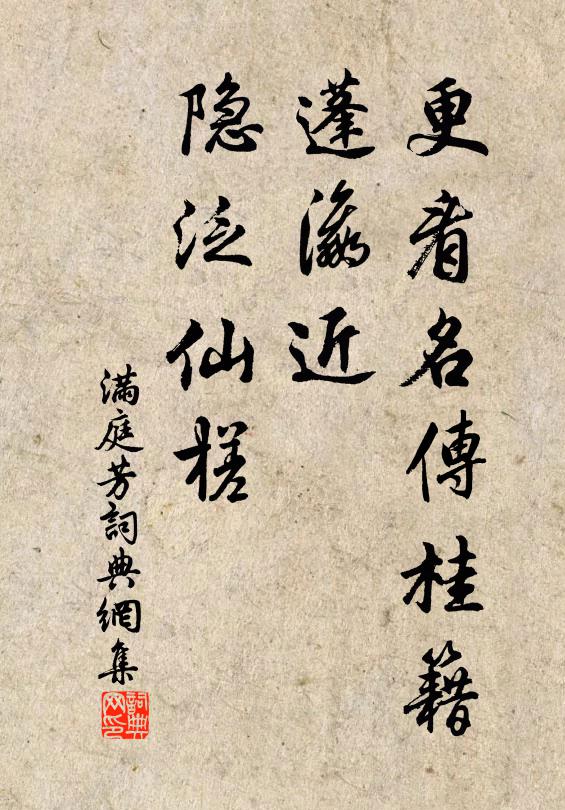 更看名傳桂籍
蓬瀛近
隐泛仙槎
滿庭芳詞典網集
詞典
网印